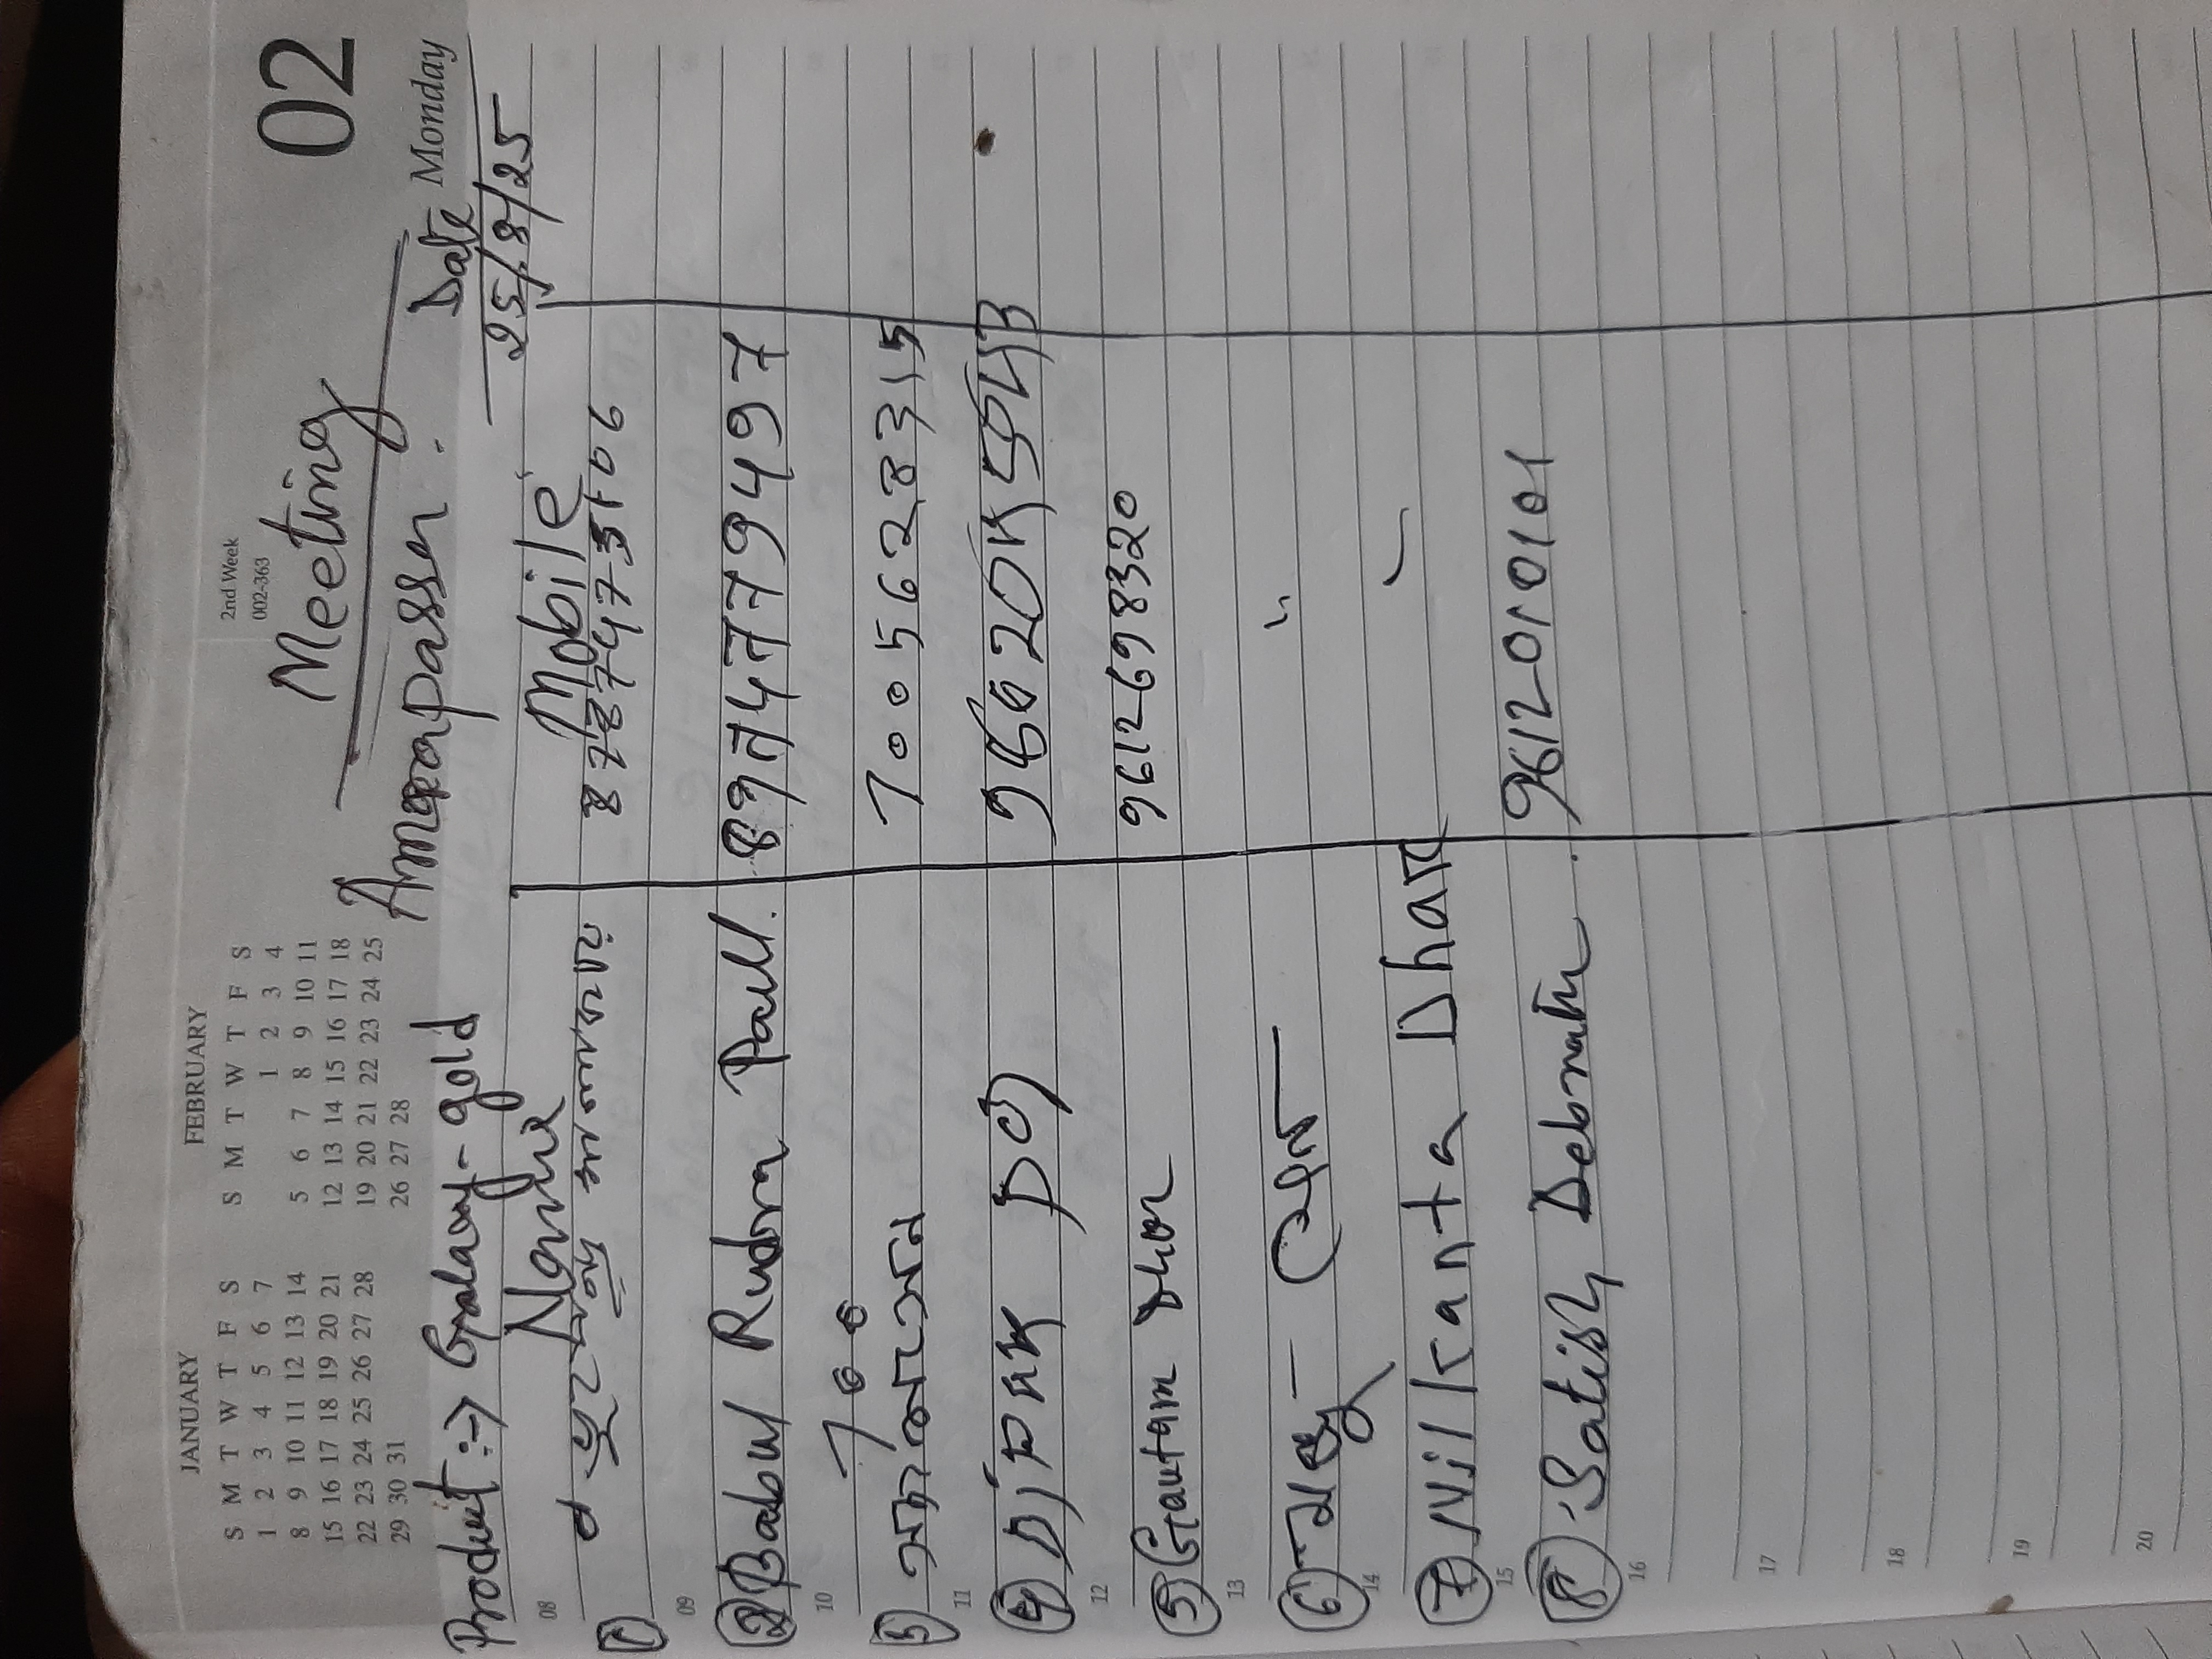 JANUARY
S M T W T F S
1 2 3 4 5 6 7
8 9 10 11 12 13 14
15 16 17 18 19 20 21
22 23 24 25 26 27 28
29 30 31
FEBRUARY
S M T W T F S
1 2 3 4
5 6 7 8 9 10 11
12 13 14 15 16 17 18
19 20 21 22 23 24 25
26 27 28
2nd Week
002-363
02
Monday
Meeting
Amarapassa.
Date
25/8/25
Product :→ Galaxy-gold
Name Mobile
08
①
09
② Babul Rudra Paul. 8974779497
10
700
③ 7005628315
11
④ দীপক
12
⑤ Gautam Dhar 9612698320
13
⑥ "
14
⑦ Nilkanta Dhar
15
⑧ Satish Debnath. 9612010101
16
17
18
19
20